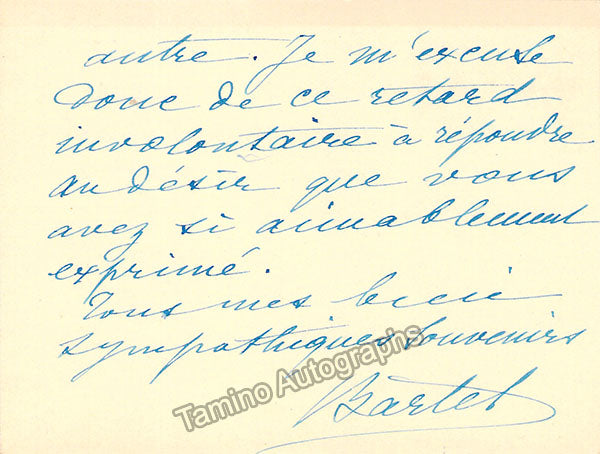 autre. Je m'excuse
donc de ce retard
involontaire à répondre
au désir que vous
avez si aimablement
exprimé.
Tous mes bien
sympathiques souvenirs
Bartet
Tamino Autographs